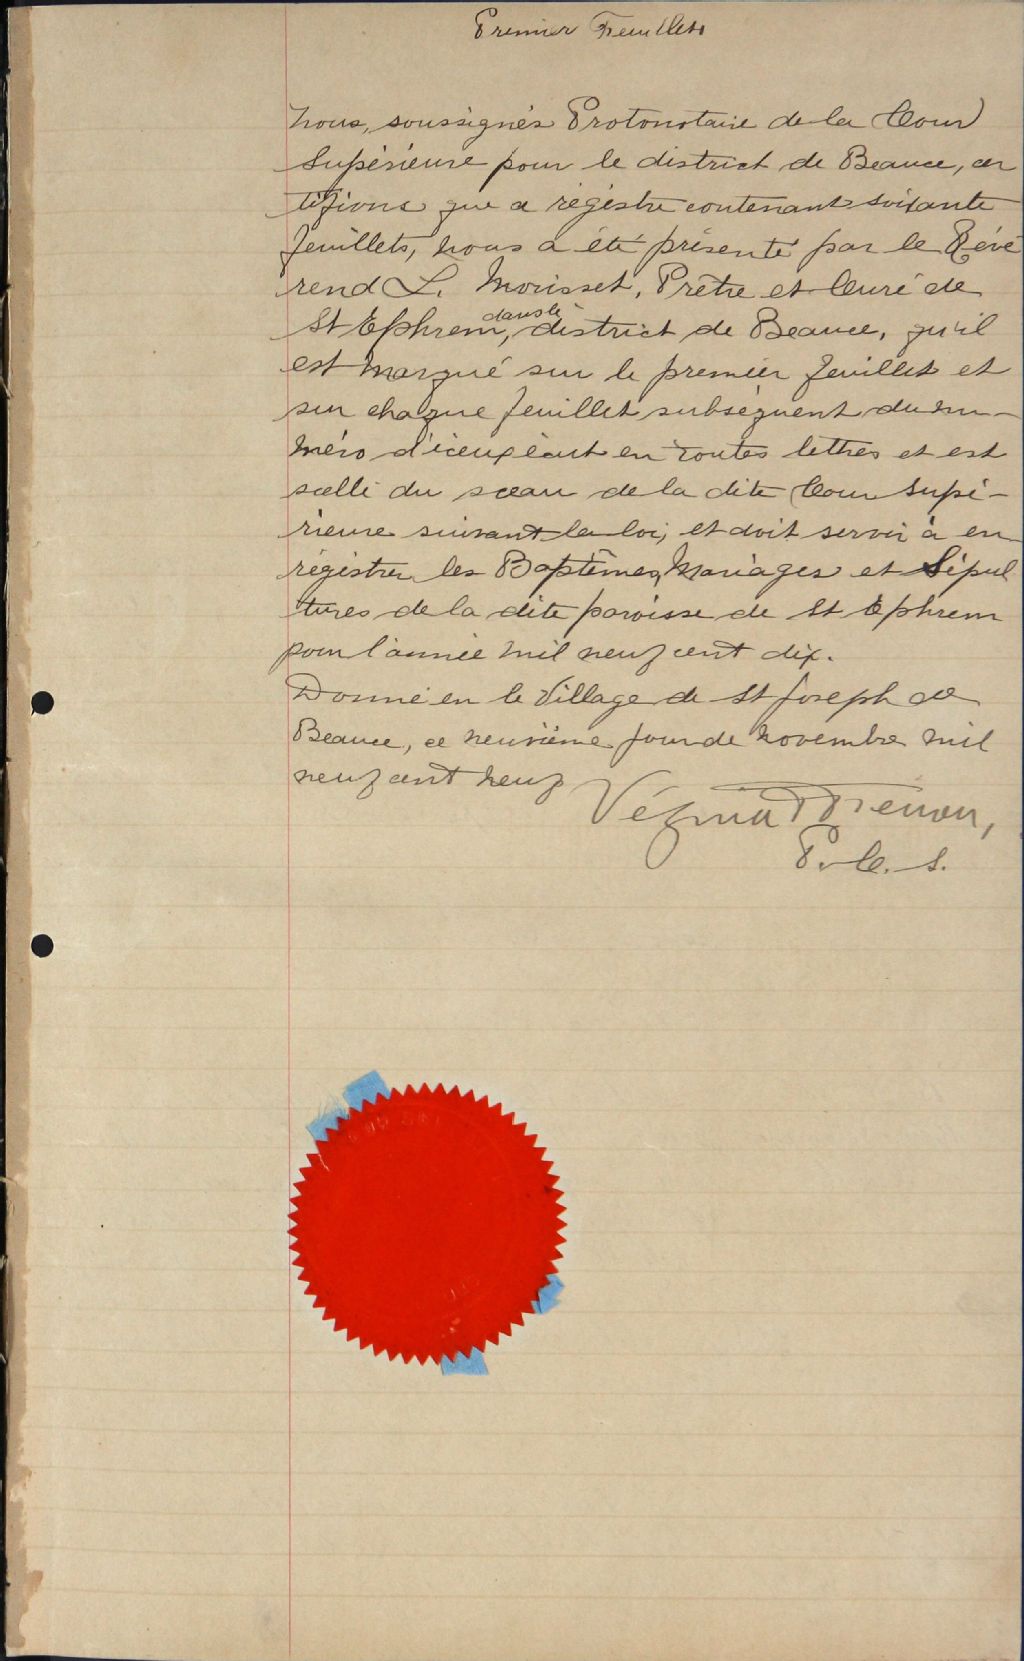 Premier Feuillet
Nous, soussignés Protonotaire de la Cour
Supérieure pour le district de Beauce, cer
tifions que ce régistre contenant soixante
feuillets, nous a été présenté par le Révé
rend L. Morisset, Prêtre et Curé de
St Ephrem, dans le district de Beauce, qu'il
est marqué sur le premier feuillet et
sur chaque feuillet subséquent du nu-
méro d'iceux écrit en toutes lettres et est
scellé du sceau de la dite Cour Supé-
rieure suivant la loi, et doit servir à en
régistrer les Baptêmes, Mariages et Sépul
tures de la dite paroisse de St Ephrem
pour l'année mil neuf cent dix.
Donné en le Village de St Joseph de
Beauce, ce neuvième jour de novembre mil
neuf cent neuf
Vézina
P. C. S.